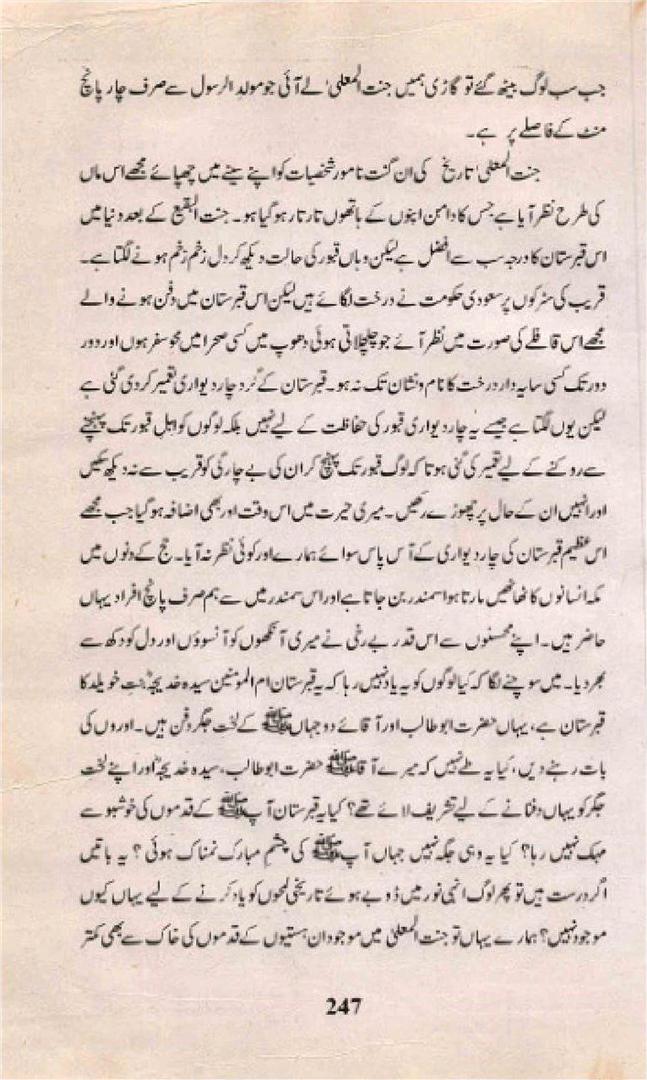 جب سب لوگ بیٹھ گئے تو گاڑی ہمیں جنت المعلیٰ لے آئی جو مولد الرسول سے صرف چار پانچ
منٹ کے فاصلے پر ہے۔
جنت المعلیٰ تاریخ کی ان گنت نامور شخصیات کو اپنے سینے میں چھپائے مجھے اس ماں
کی طرح نظر آیا ہے جس کا دامن اپنوں کے ہاتھوں تار تار ہو گیا ہو۔ جنت البقیع کے بعد دنیا میں
اس قبرستان کا درجہ سب سے افضل ہے لیکن وہاں قبور کی حالت دیکھ کر دل زخم زخم ہونے لگتا ہے۔
قریب کی سڑکوں پر سعودی حکومت نے درخت لگائے ہیں لیکن اس قبرستان میں دفن ہونے والے
مجھے اس قافلے کی صورت میں نظر آئے جو چلچلاتی ہوئی دھوپ میں کسی صحرا میں محو سفر ہوں اور دور
دور تک کسی سایہ دار درخت کا نام و نشان تک نہ ہو۔ قبرستان کے گرد چار دیواری تعمیر کر دی گئی ہے
لیکن یوں لگتا ہے جیسے یہ چار دیواری قبور کی حفاظت کے لیے نہیں بلکہ لوگوں کو اہل قبور تک پہنچنے
سے روکنے کے لیے تعمیر کی گئی ہو تا کہ لوگ قبور تک پہنچ کر ان کی بے چارگی کو قریب سے نہ دیکھ سکیں
اور انہیں ان کے حال پر چھوڑے رکھیں۔ میری حیرت میں اس وقت اور بھی اضافہ ہو گیا جب مجھے
اس عظیم قبرستان کی چار دیواری کے آس پاس سوائے ہمارے اور کوئی نظر نہ آیا۔ حج کے دنوں میں
مکہ انسانوں کا ٹھاٹھیں مارتا ہوا سمندر بن جاتا ہے اور اس سمندر میں سے ہم صرف پانچ افراد یہاں
حاضر ہیں۔ اپنے محسنوں سے اس قدر بے رخی نے میری آنکھوں کو آنسوؤں اور دل کو دکھ سے
بھر دیا۔ میں سوچنے لگا کہ کیا لوگوں کو یہ یاد نہیں رہا کہ یہ قبرستان ام المومنین سیدہ خدیجہؓ بنت خویلد کا
قبرستان ہے، یہاں حضرت ابو طالب اور آقائے دو جہاں ﷺ کے لخت جگر دفن ہیں۔ اوروں کی
بات رہنے دیں، کیا یہ طے نہیں کہ میرے آقا ﷺ حضرت ابو طالب، سیدہ خدیجہؓ اور اپنے لخت
جگر کو یہاں دفنانے کے لیے تشریف لائے تھے؟ کیا یہ قبرستان آپ ﷺ کے قدموں کی خوشبو سے
مہک نہیں رہا؟ کیا یہ وہی جگہ نہیں جہاں آپ ﷺ کی چشم مبارک نمناک ہوئی؟ یہ باتیں
اگر درست ہیں تو پھر لوگ انہی نور میں ڈوبے ہوئے تاریخی لمحوں کو یاد کرنے کے لیے یہاں کیوں
موجود نہیں؟ ہمارے یہاں تو جنت المعلیٰ میں موجود ان ہستیوں کے قدموں کی خاک سے بھی کمتر
247